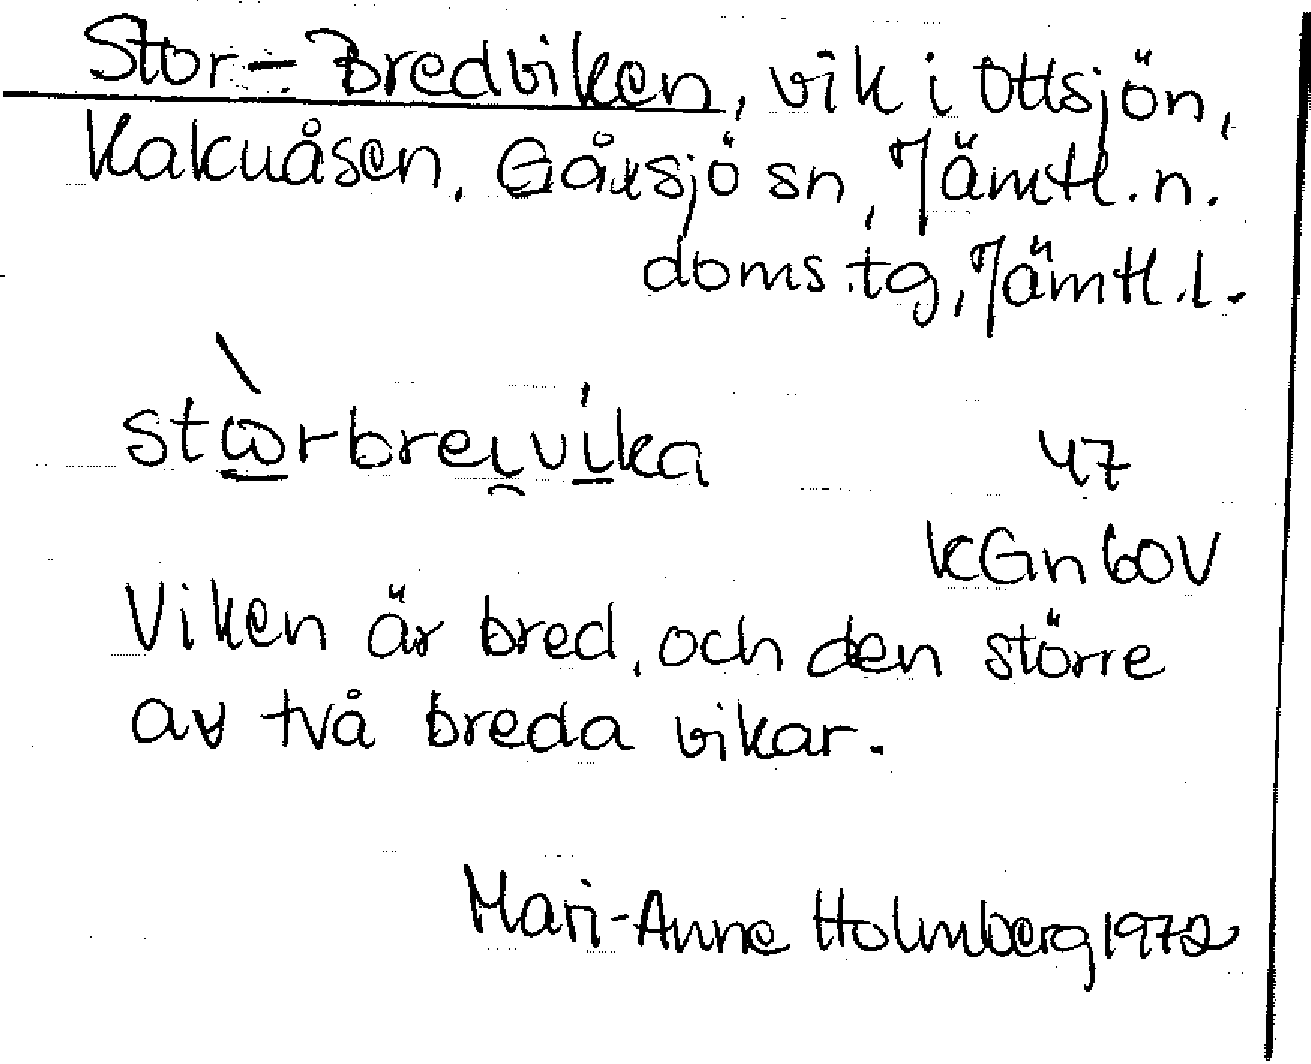 Stor-Bredviken, vik i Ottsjön,
Kakuåsen, Gåxsjö sn, Jämtl. n.
doms.tg, Jämtl. l.
stѡ̀rbrei̯vi̱ka 47
KGn 60V
Viken är bred, och den större
av två breda vikar.
Mari-Anne Holmberg 1972